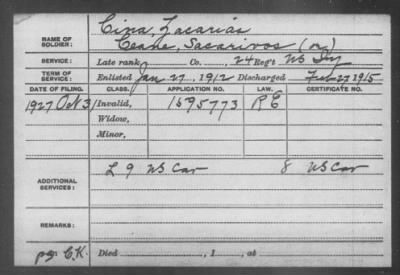 NAME OF SOLDIER: Cina, Zacarias
Ceane, Sacarivos (or)
SERVICE: Late rank Co., 24 Reg't US Inf
TERM OF SERVICE: Enlisted Jan 27, 1912 Discharged Feb 27 1915
DATE OF FILING. CLASS. APPLICATION NO. LAW. CERTIFICATE NO.
1927 Oct 31 Invalid, 1595773 R E
Widow,
Minor,
ADDITIONAL SERVICES: L 9 US Cav 8 US Cav
REMARKS:
Died , 1 , at